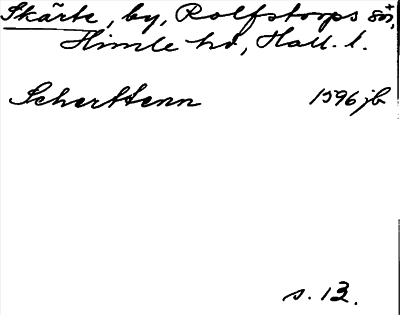 Skärte, by, Rolfstorps sn,
Himle hd, Hall. l.
Scherttenn 1596 jb
s. 13.